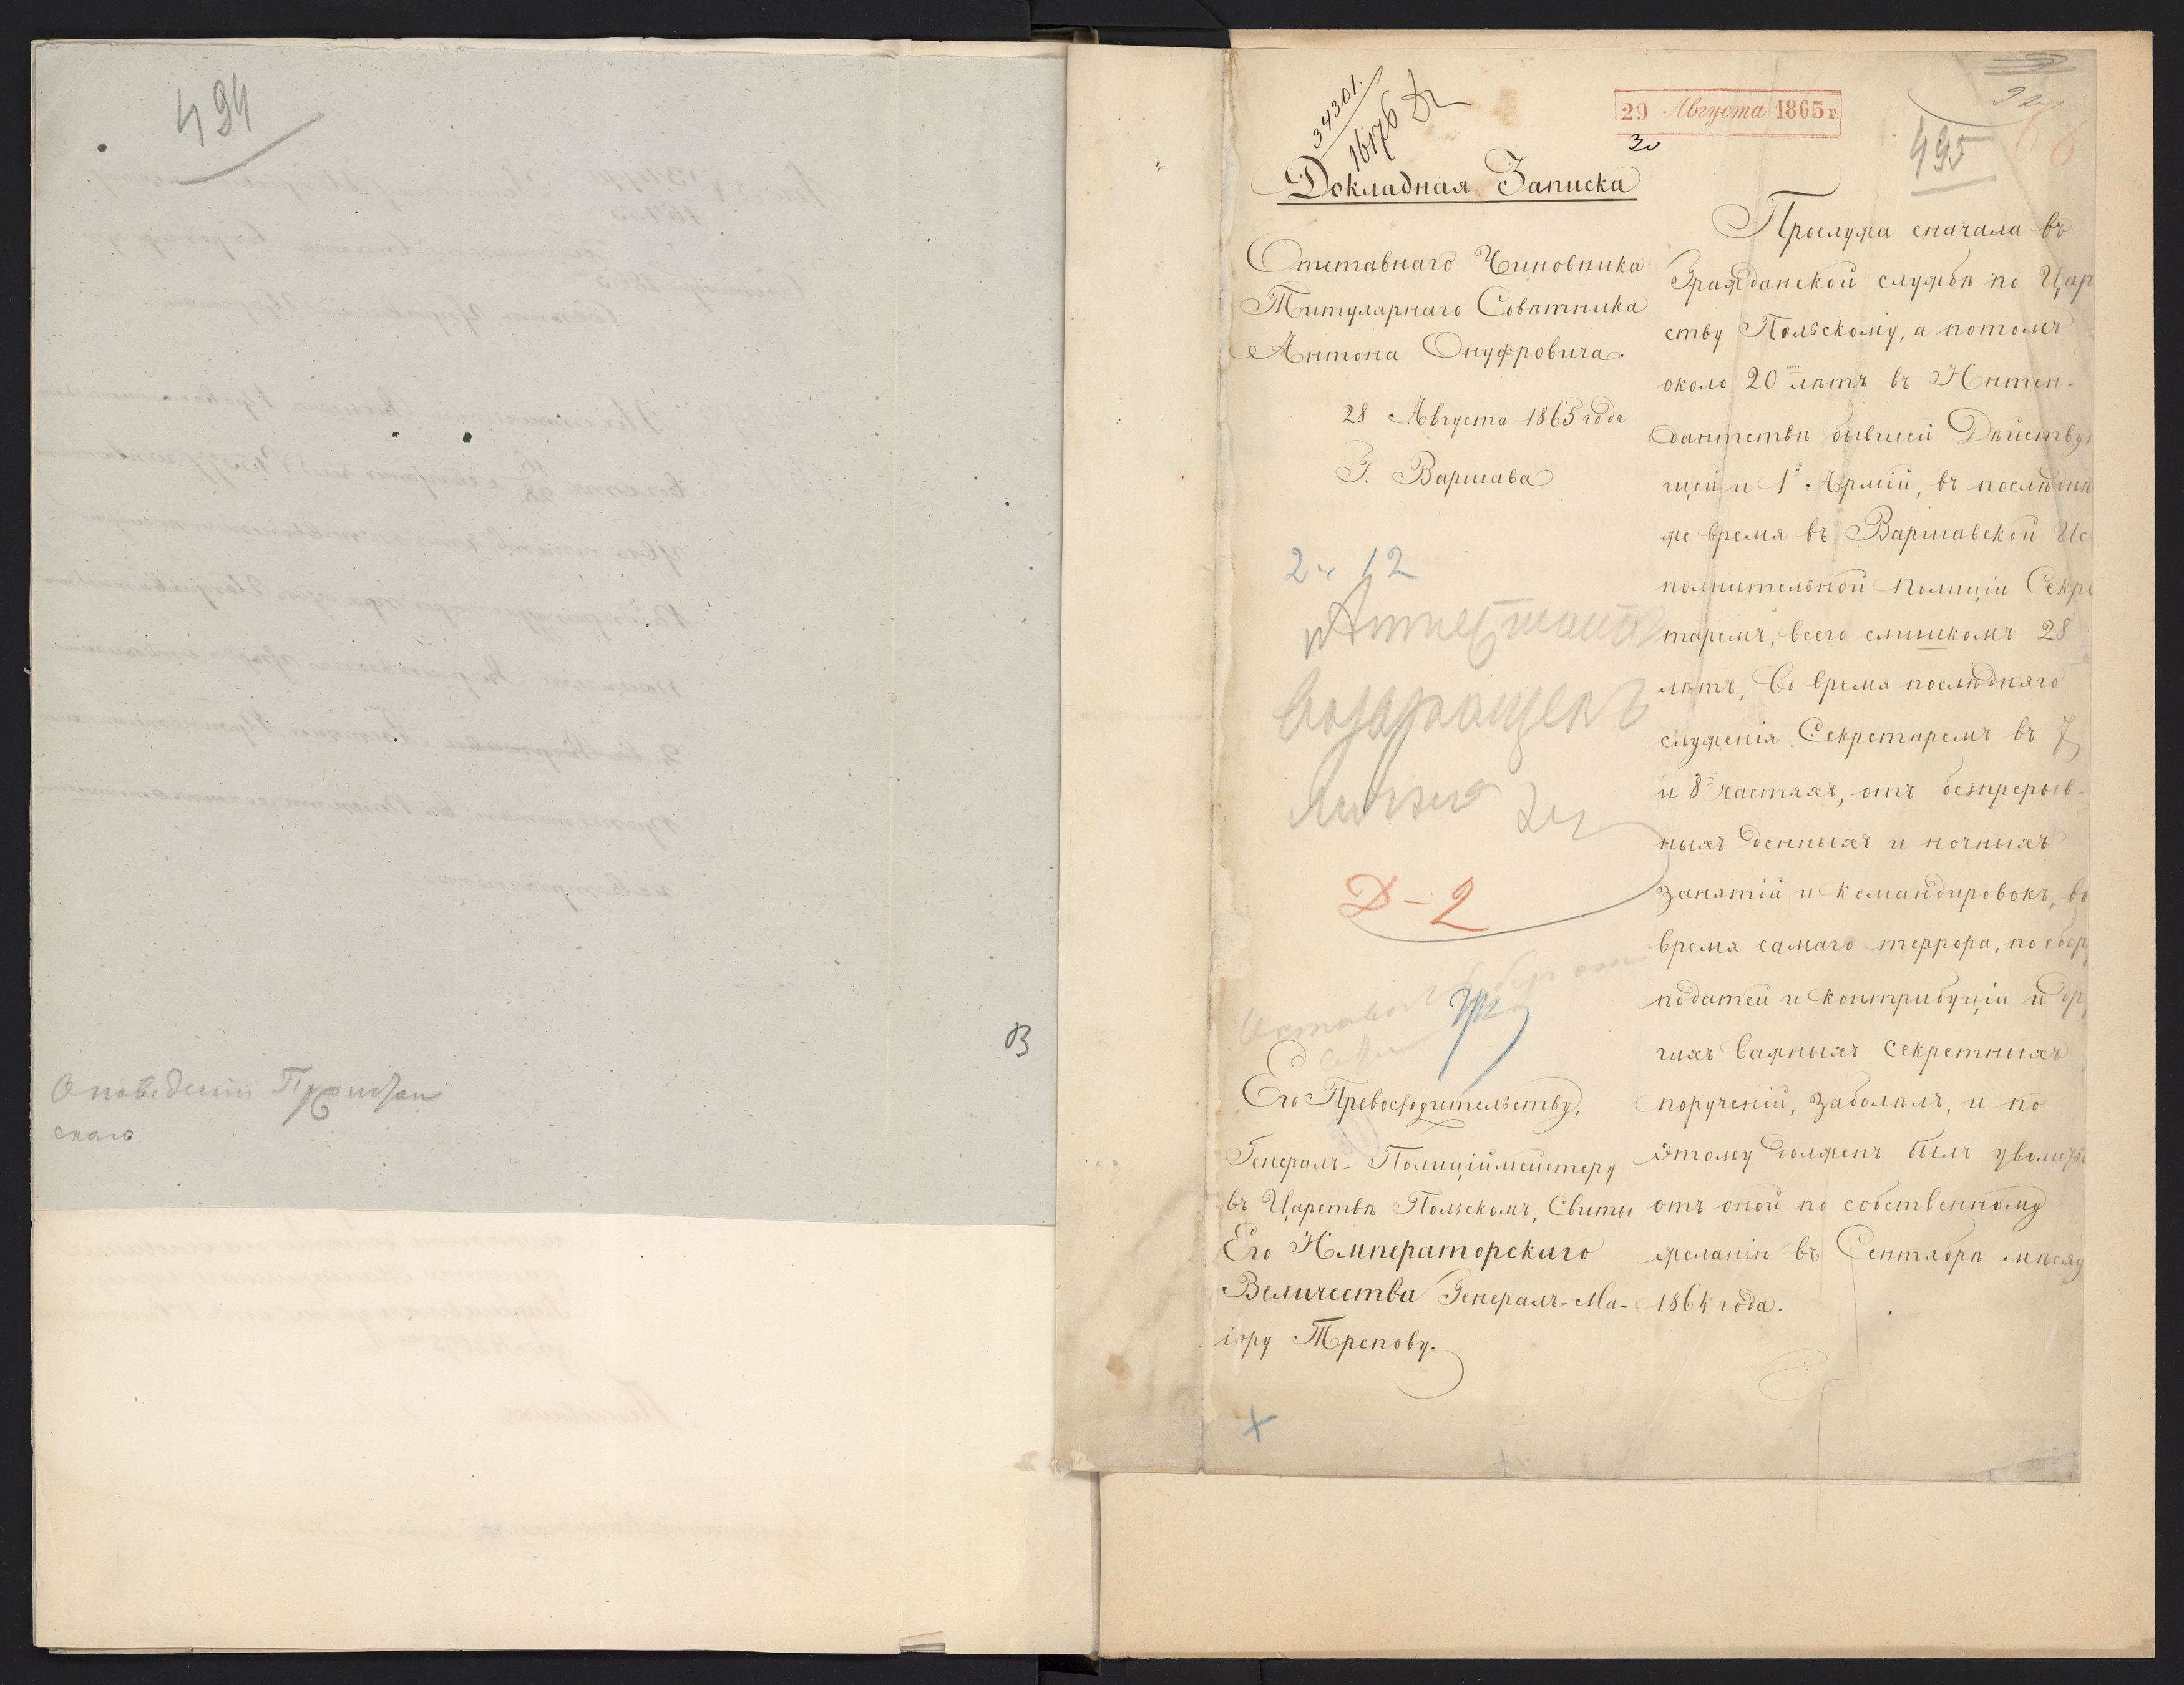 494
В
34301
16176
29 Августа 1865 г.
30
495
Докладная Записка
Отставнаго Чиновника
Титулярнаго Совѣтника
Антона Онуфровича.
28 Августа 1865 года
Г. Варшава
2. 12
Аттестатъ
возвращенъ
лично
Д-2
Его Превосходительству,
Генералъ-Полиціймейстеру
въ Царствѣ Польскомъ, Свиты
Его Императорскаго
Величества Генералъ-Ма-
іору Трепову.
Прослужа сначала въ
Гражданской службѣ по Цар
ству Польскому, а потомъ
около 20 лѣтъ въ Интен-
дантствѣ бывшей Дѣйству
щей и 1й Арміи, въ послѣдн
же время въ Варшавской Ис
полнительной Полиціи Секре
таремъ, всего слишкомъ 28
лѣтъ, Во время послѣдняго
служенія Секретаремъ въ 7
и 8й частяхъ, отъ безпрерыв-
ныхъ денныхъ и ночныхъ
занятій и командировокъ, во
время самаго террора, по сбор
податей и контрибуціи и др
гихъ важныхъ секретныхъ
порученій, заболѣлъ, и по
этому долженъ былъ уволит
отъ оной по собственному
желанію въ Сентябрѣ мѣсяц
1864 года.